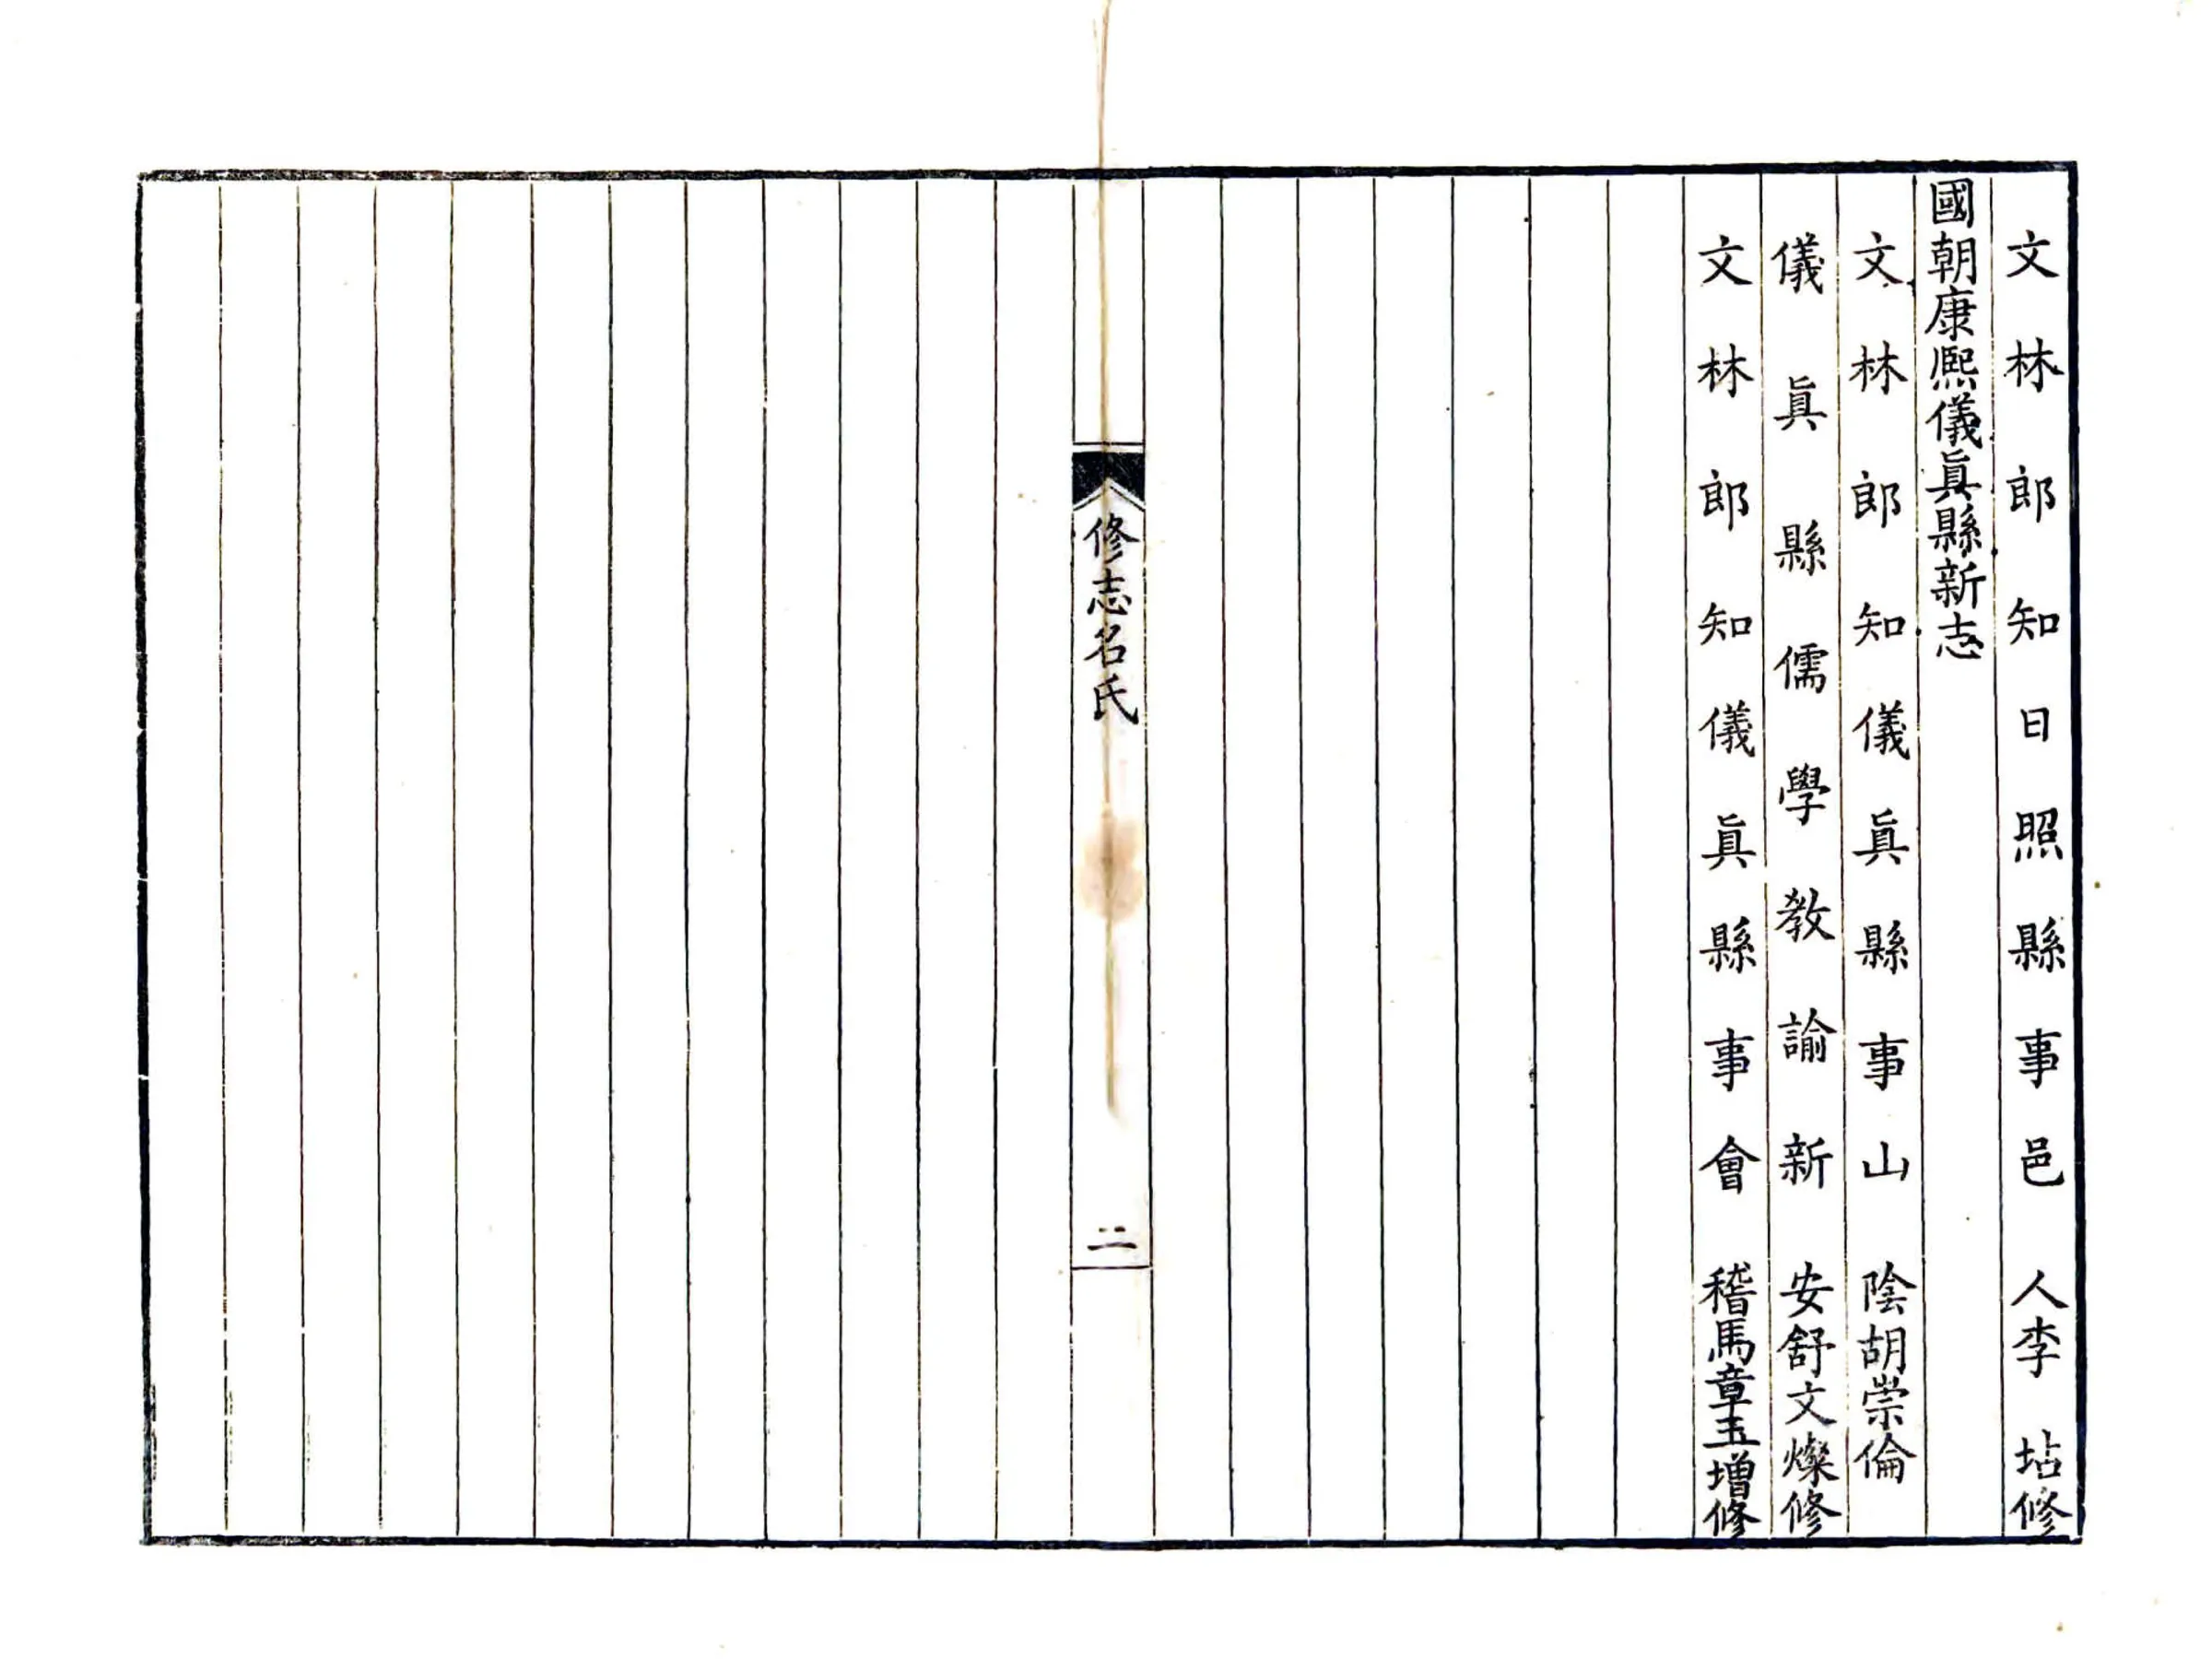 文林郎知日照縣事邑人李坫修
國朝康熙儀眞縣新志
文林郎知儀眞縣事山陰胡崇倫
儀眞縣儒學敎諭新安舒文燦修
文林郎知儀眞縣事會稽馬章玉增修
修志名氏
二